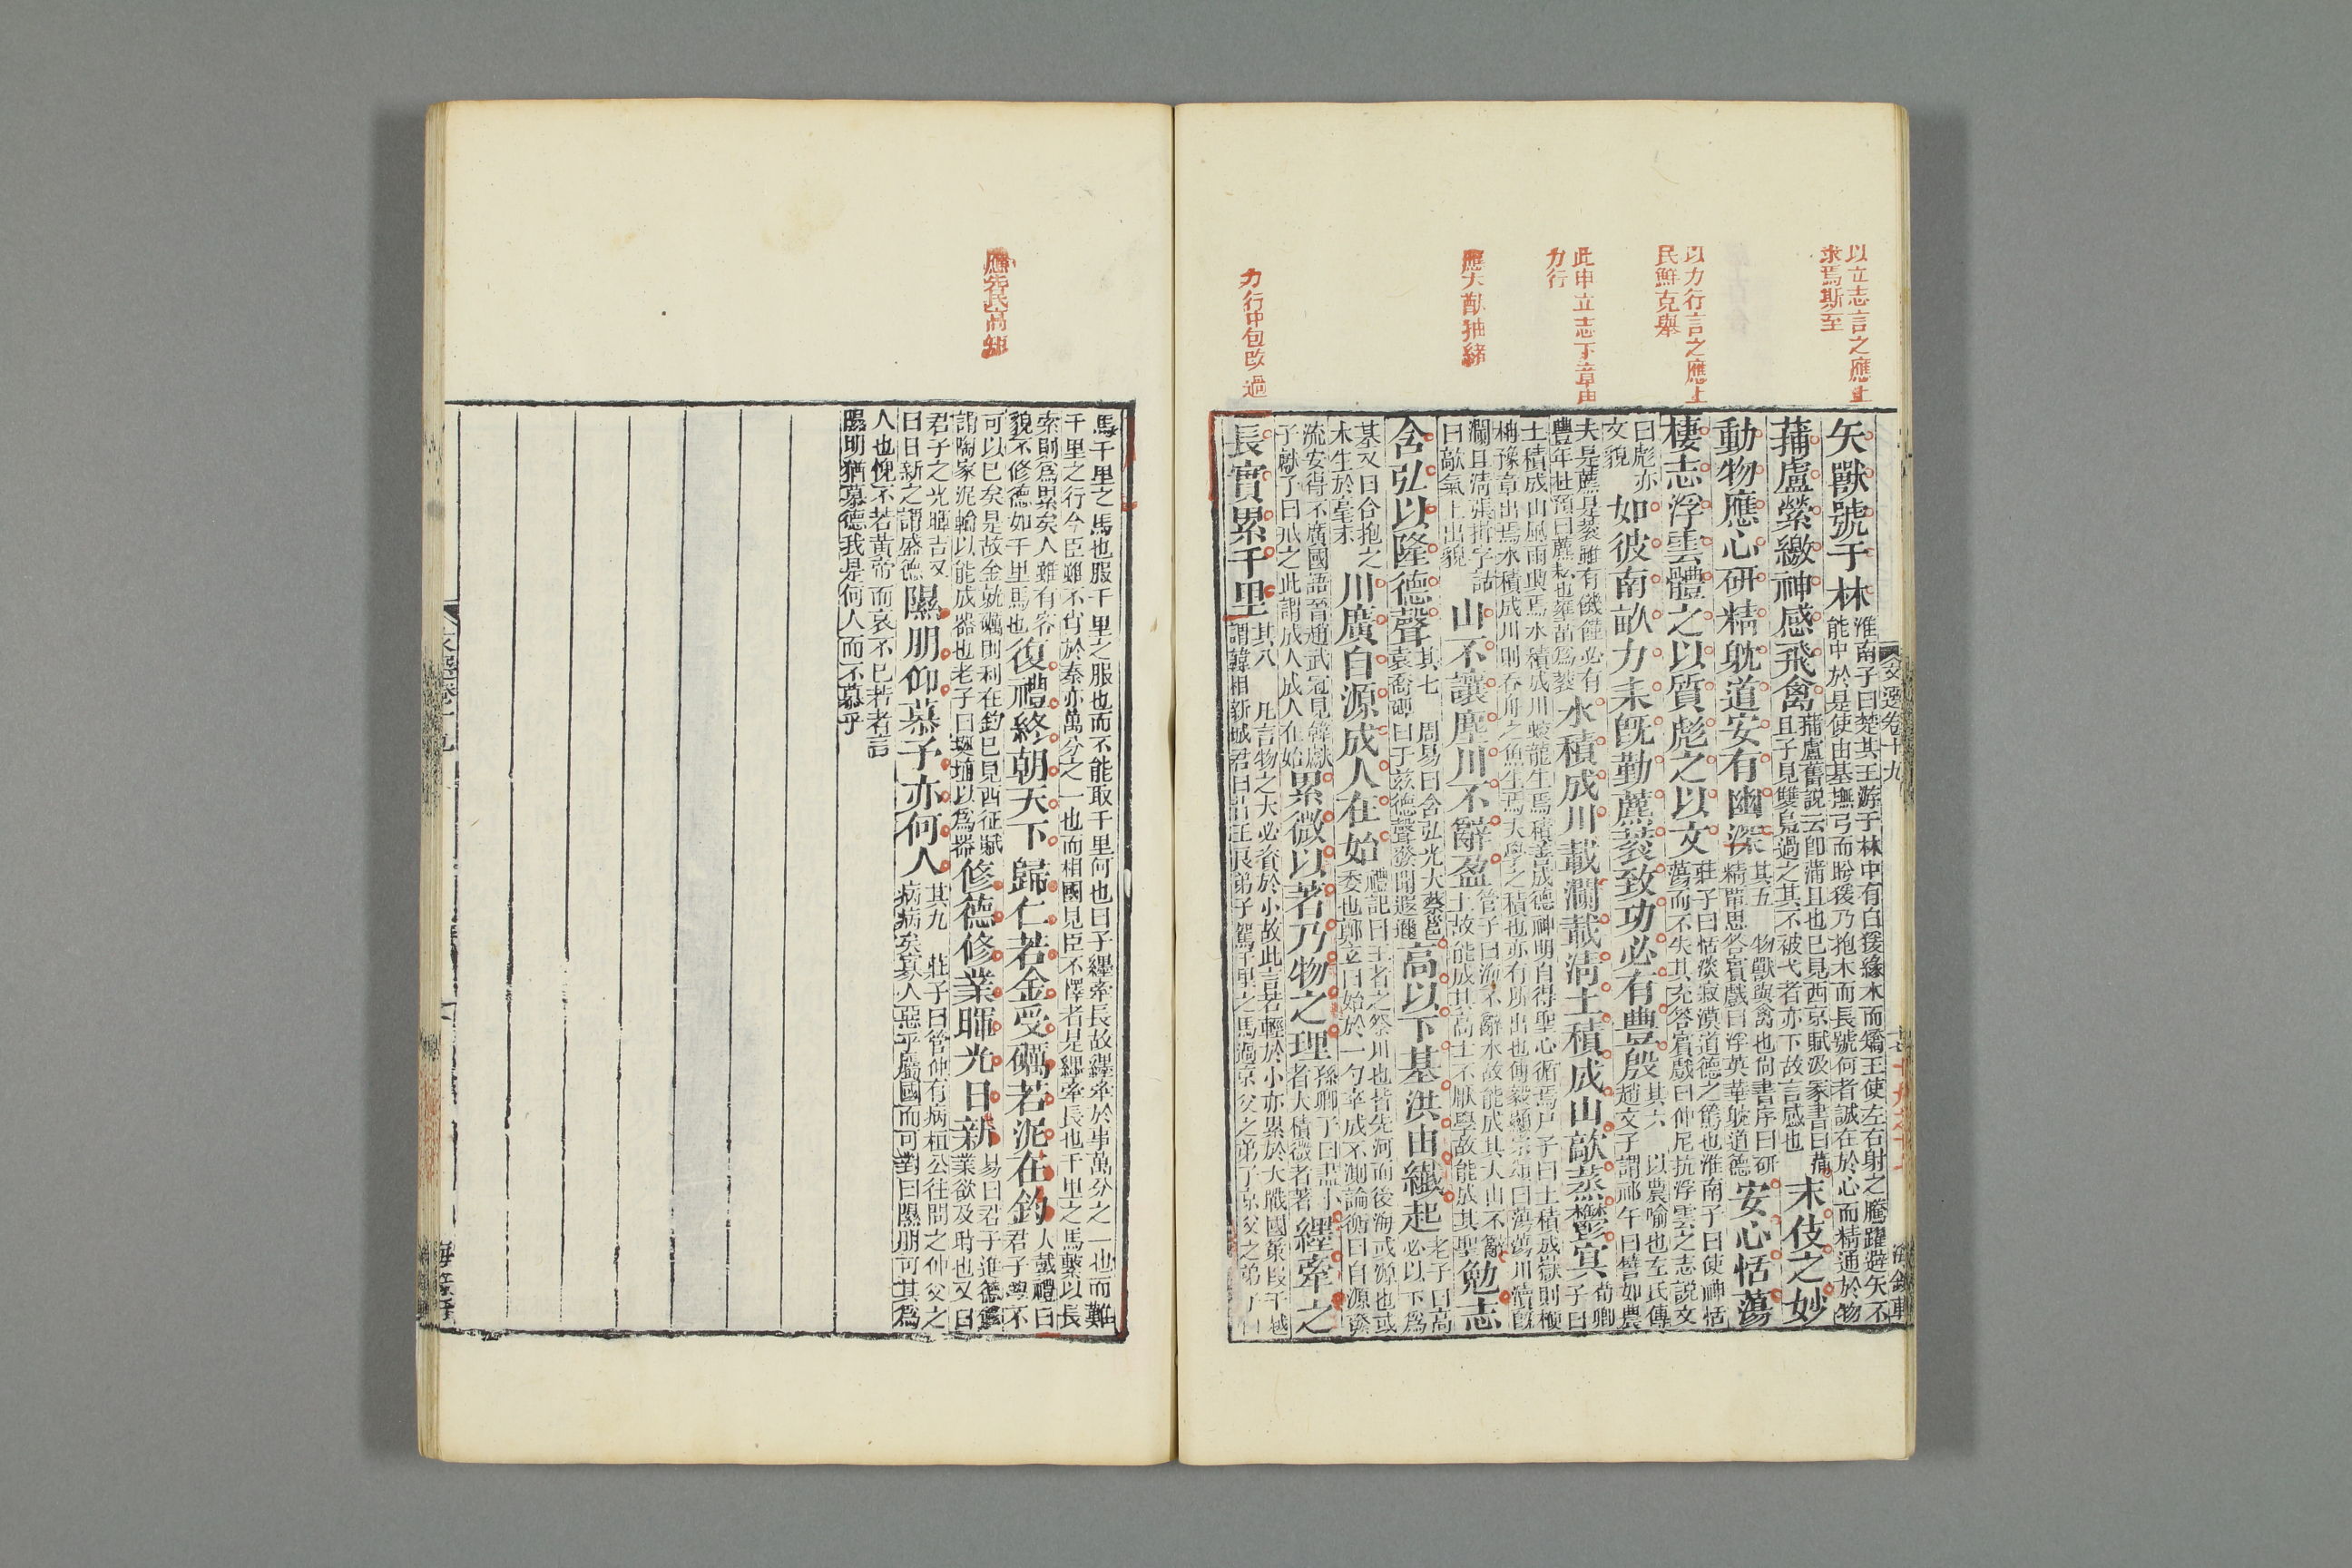 以立志言之應上
求焉斯至
以力行言之應上
民鮮克舉
此申立志下章申
力行
應大猷抽緒
力行中包改過
矢獸號于林
淮南子曰楚共王游于林中有白猨緣木而矯王使左右射之騰躍避矢不
能中於是使由基撫弓而眄猨乃抱木而長號何者誠在於心而精通於物
蒲盧縈繳神感飛禽
蒲盧舊說云卽蒲且也已見西京賦汲冢書曰蒲
且子見雙鳧過之其不被弋者亦下故言感也
末伎之妙
動物應心研精躭道安有幽深
其五　物獸與禽也尙書序曰研
精覃思答賓戲曰浮英華躭道德
安心恬蕩
棲志浮雲體之以質彪之以文
莊子曰恬淡寂漠道德之篤也淮南子曰使神恬
蕩而不失其充答賓戲曰仲尼抗浮雲之志說文
曰彪亦
文貌
如彼南畝力耒旣勤藨蔉致功必有豊殷
其六　以農喻也左氏傳
趙文子謂祁午曰譬如農
夫是藨是蔉雖有饑饉必有
豐年杜預曰藨耘也壅苗爲蔉
水積成川載瀾載淸土積成山歊蒸鬱冥
荀卿
子曰
土積成山風雨興焉水積成川蛟龍生焉積善成德神明自得聖心循焉尸子曰土積成嶽則楩
柟豫章出焉水積成川則吞舟之魚生焉夫學之積也亦有所出也傅毅顯宗頌曰蕩蕩川瀆旣
瀾且淸張揖字詁
曰歊氣上出貌
山不讓塵川不辭盈
管子曰海不辭水故能成其大山不辭
土故能成其高士不厭學故能成其聖
勉志
含弘以隆德聲
其七　周易曰含弘光大蔡邕
袁喬碑曰于兹德聲發聞遐邇
高以下基洪由纖起
老子曰高
必以下爲
基又曰合抱之
木生於毫末
川廣自源成人在始
禮記曰王者之祭川也皆先河而後海或源也或
委也鄭玄曰始於一勺卒成不測論衡曰自源發
流安得不廣國語晉趙武冠見韓獻
子獻子曰戒之此謂成人成人在始
累微以著乃物之理
孫卿子曰盡小
者大積微者著
纆牽之
長實累千里
其八　凡言物之大必資於小故此言若輕於小亦累於大戰國策段干越
謂韓相新城君曰昔王良弟子駕千里之馬過京父之弟子京父之弟子曰
文選卷十九
海錄軒
應寄民高矩
馬千里之馬也服千里之服也而不能取千里何也曰子纆牽長故纆牽於事萬分之一也而難
千里之行今臣雖不肖於秦亦萬分之一也而相國見臣不懌者是纆牽長也千里之馬繫以長
索則爲累矣人雖有容
貌不修德如千里馬也
復禮終朝天下歸仁若金受礪若泥在鈞
大戴禮曰
君子學不
可以已矣是故金就礪則利在鈞已見西征賦
謂陶家泥輪以能成器也老子曰埏埴以爲器
修德修業暉光日新
易曰君子進德修
業欲及時也又曰
君子之光暉吉又
曰日新之謂盛德
隰朋仰慕子亦何人
其九　莊子曰管仲有病桓公往問之仲父之
病病矣寡人惡乎屬國而可對曰隰朋可其爲
人也愧不若黃帝而哀不已若者言
隰明猶慕德我是何人而不慕乎
文選卷十九
海錄軒